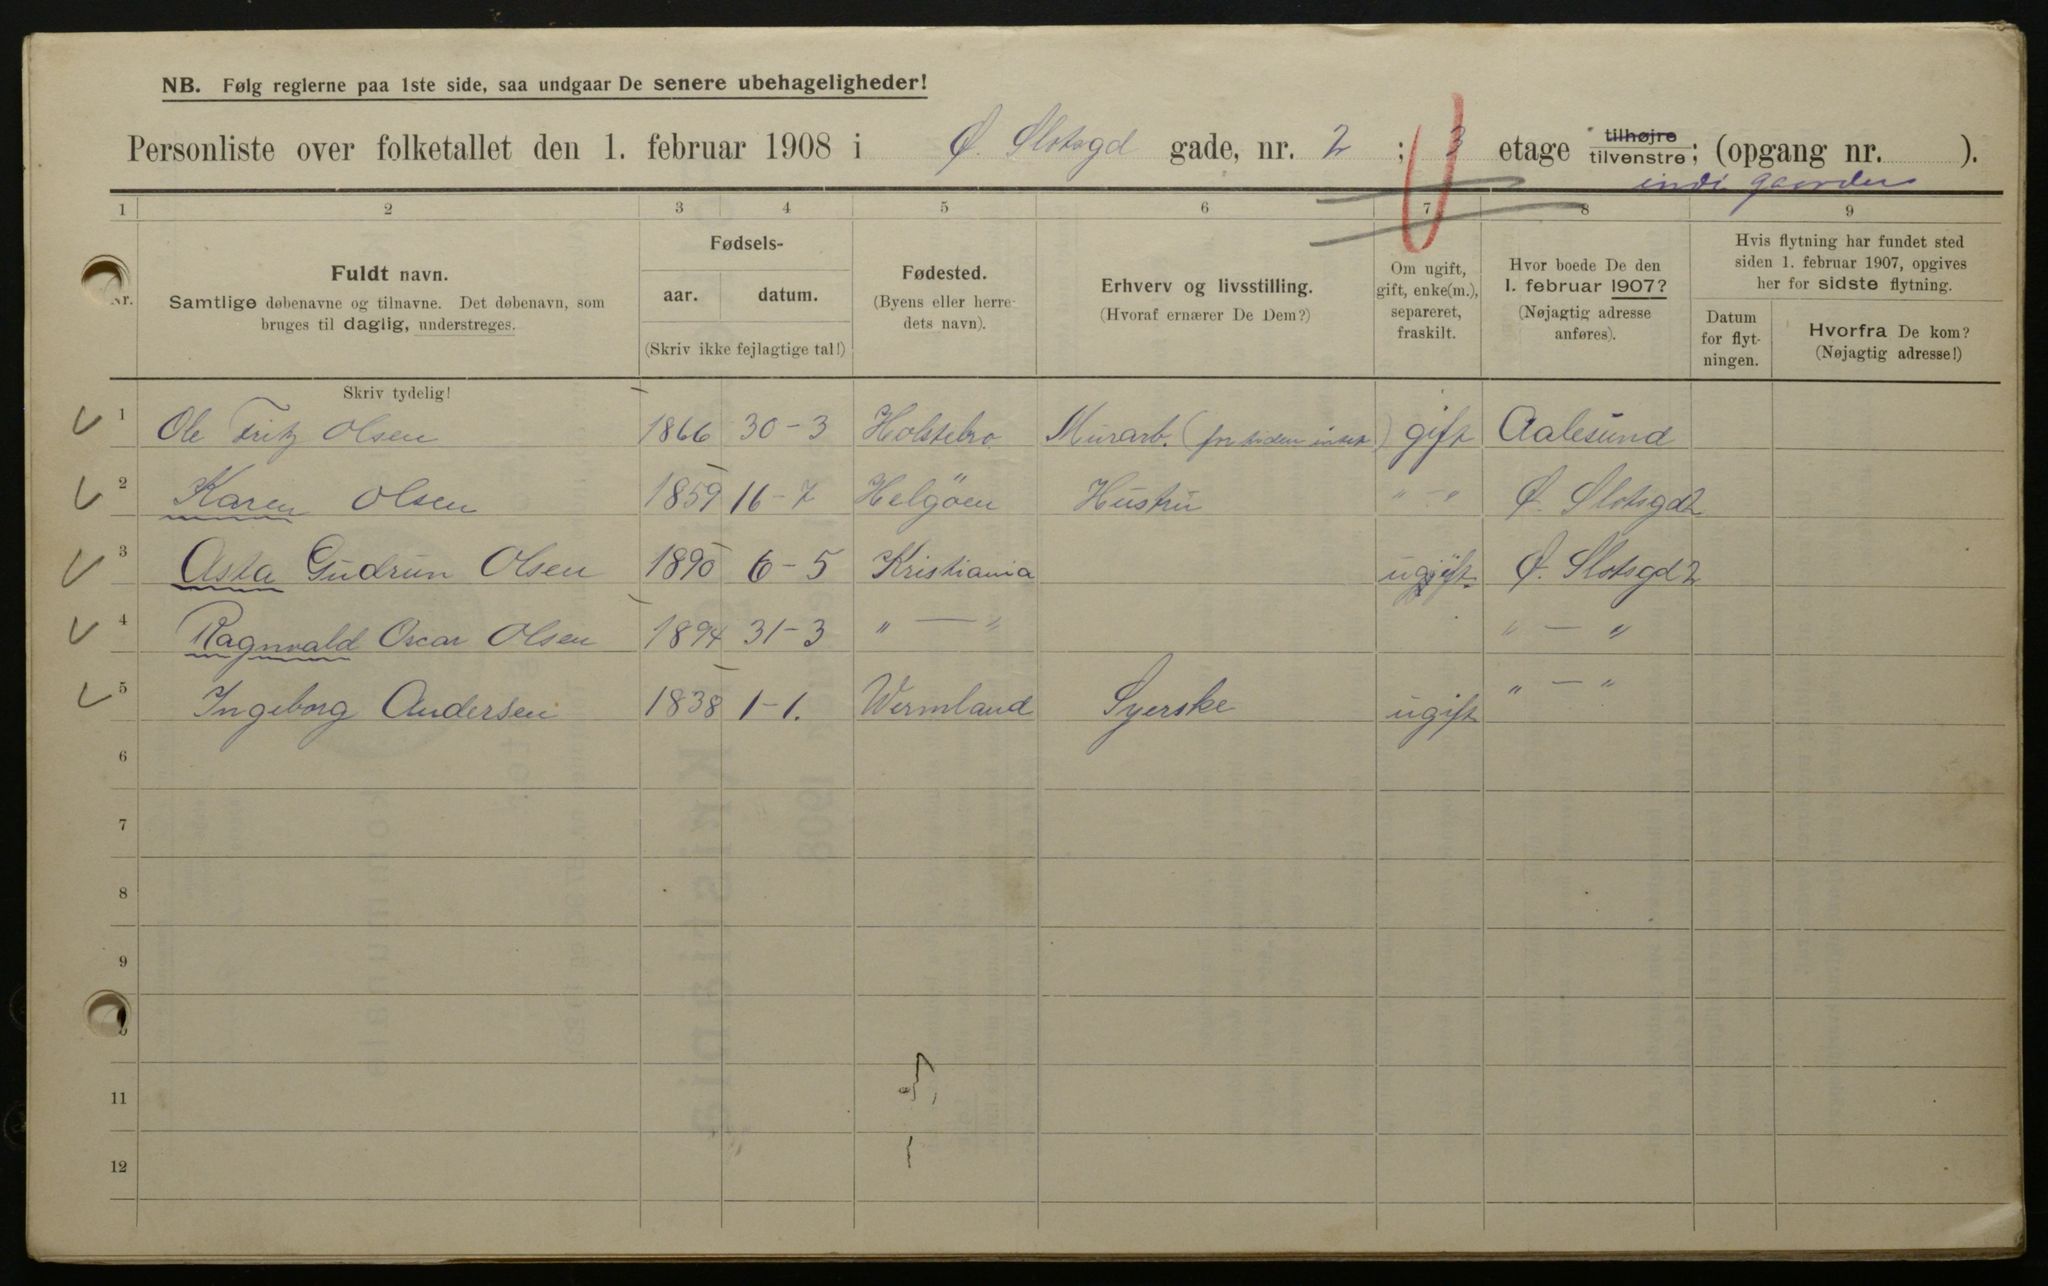 NB. Følg reglerne paa 1ste side, saa undgaar De senere ubehageligheder!
Personliste over folketallet den 1. februar 1908 i Ø. Slotsgd gade, nr. 2 ; 3 etage tilhøjre tilvenstre; (opgang nr. ).
indi gaarden
1 2 3 4 5 6 7 8 9
Nr.
Fuldt navn.
Samtlige døbenavne og tilnavne. Det døbenavn, som
bruges til daglig, understreges.
Fødsels-
aar. datum.
(Skriv ikke fejlagtige tal!)
Fødested.
(Byens eller herre-
dets navn).
Erhverv og livsstilling.
(Hvoraf ernærer De Dem?)
Om ugift,
gift, enke(m.),
separeret,
fraskilt.
Hvor boede De den
1. februar 1907?
(Nøjagtig adresse
anføres).
Hvis flytning har fundet sted
siden 1. februar 1907, opgives
her for sidste flytning.
Datum
for flyt-
ningen.
Hvorfra De kom?
(Nøjagtig adresse!)
Skriv tydelig!
1 Ole Fritz Olsen 1866 30-3 Holstebro Murarb. (for tiden intet) gift Aalesund
2 Karen Olsen 1859 16-7 Helgöen Hustru " - " Ø. Slotsgd 2
3 Asta Gudrun Olsen 1890 6-5 Kristiania ugift Ø. Slotsgd 2
4 Ragnvald Oscar Olsen 1894 31-3 " — " " — "
5 Ingeborg Andersen 1838 1-1. Wermland Syerske ugift " — "
6
7
8
9
11
12